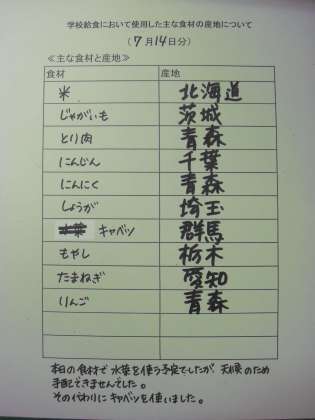 学校給食において使用した主な食材の産地について
(7月14日分)
≪主な食材と産地≫
食材 産地
米 北海道
じゃがいも 茨城
とり肉 青森
にんじん 千葉
にんにく 青森
しょうが 埼玉
水菜 キャベツ 群馬
もやし 栃木
たまねぎ 愛知
りんご 青森
本日の食材で水菜を使う予定でしたが、天候のため
手配できませんでした。
その代わりにキャベツを使いました。